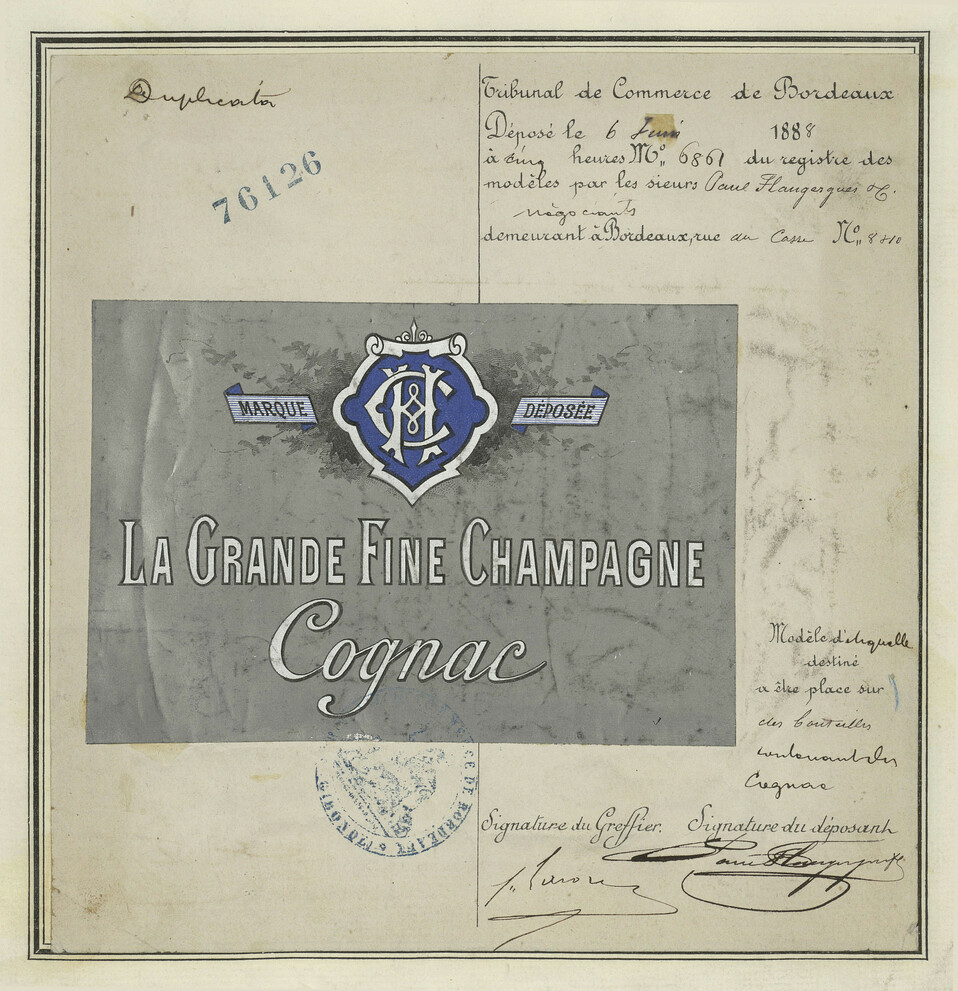 Duplicata
76126
Tribunal de Commerce de Bordeaux
Déposé le 6 Juin 1888
à cinq heures No 6861 du registre des
modèles par les sieurs Paul Flaugergues & C.
négociants
demeurant à Bordeaux, rue du Casse No 8 &10
MARQUE DÉPOSÉE
LA GRANDE FINE CHAMPAGNE
Cognac
Modèle d'étiquette
destiné
a être place sur
des bouteilles
contenant du
Cognac
DE BORDEAUX
Signature du Greffier. Signature du déposant